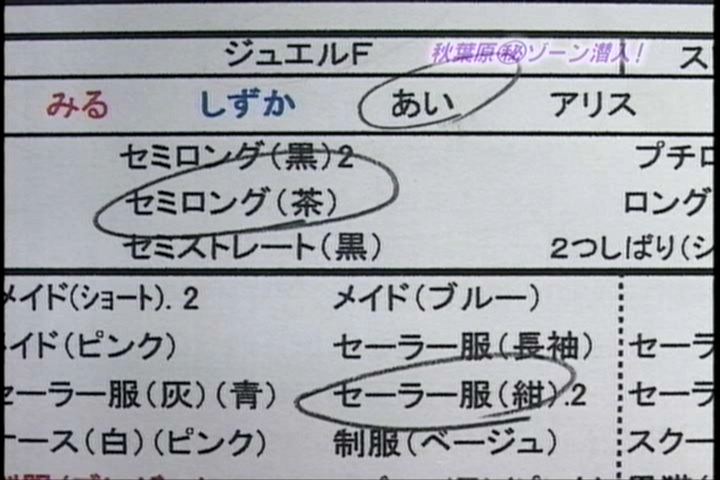 ジュエルF
秋葉原㊙ゾーン潜入!
みる しずか あい アリス
セミロング(黒)2 プチロ
セミロング(茶) ロング
セミストレート(黒) 2つしばり(シ
メイド(ショート).2 メイド(ブルー)
イド(ピンク) セーラー服(長袖) セーラ
セーラー服(灰)(青) セーラー服(紺).2 セーラ
ース(白)(ピンク) 制服(ベージュ) スクー